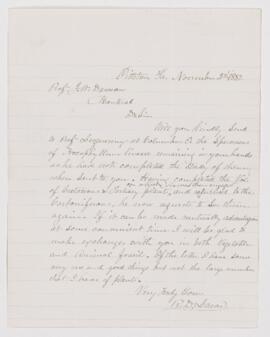 Pittston Pa. November 3rd 1883
Prof. J. W. Dawson
Montreal
Dr Sir
Will you kindly send
to Prof. Lesquereux at Columbus O. the Specimens
of remaining in your hands
as he had not completed the of them
when sent to you. Having completed the
of Cretaceous & Tertiary plants, and returned to the
Carboniferous, he now wants to see them
again. If it can be made mutually advantageous
at some convenient time I will be glad to
make exchanges with you in both Vegetable
and Animal fossils. Of the latter I have some
very new and good things but not the large number
that I have of plants.
Very truly Yours
R. D. Lacoe